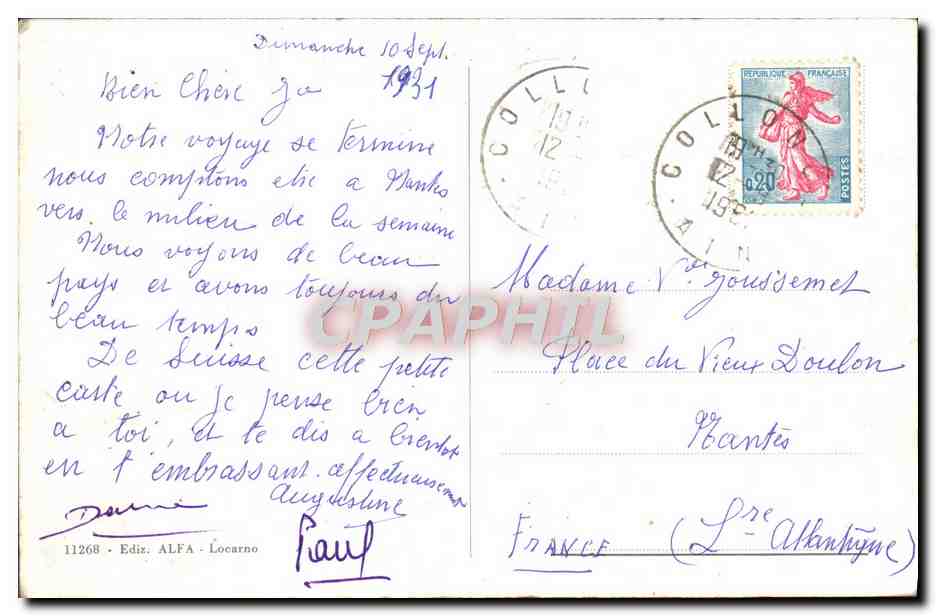 Dimanche 10 Sept.
1931
Bien Chère Jo
Notre voyage se termine
nous comptons etre a Nantes
vers le milieu de la semaine
Nous voyons de beau
pays et avons toujours du
beau temps
De Suisse cette petite
carte ou je pense bien
a toi, et te dis a bientot
en t'embrassant affectueusement
Augustine
Paul
11268 - Ediz. ALFA - Locarno
COLLON
19
12
AIN
COLLON
19H
12
196
AIN
REPUBLIQUE FRANÇAISE
0,20
POSTES
Madame Vve Joussemet
Place du Vieux Doulon
Nantes
(Lre Atlantique)
FRANCE
CPAPHIL